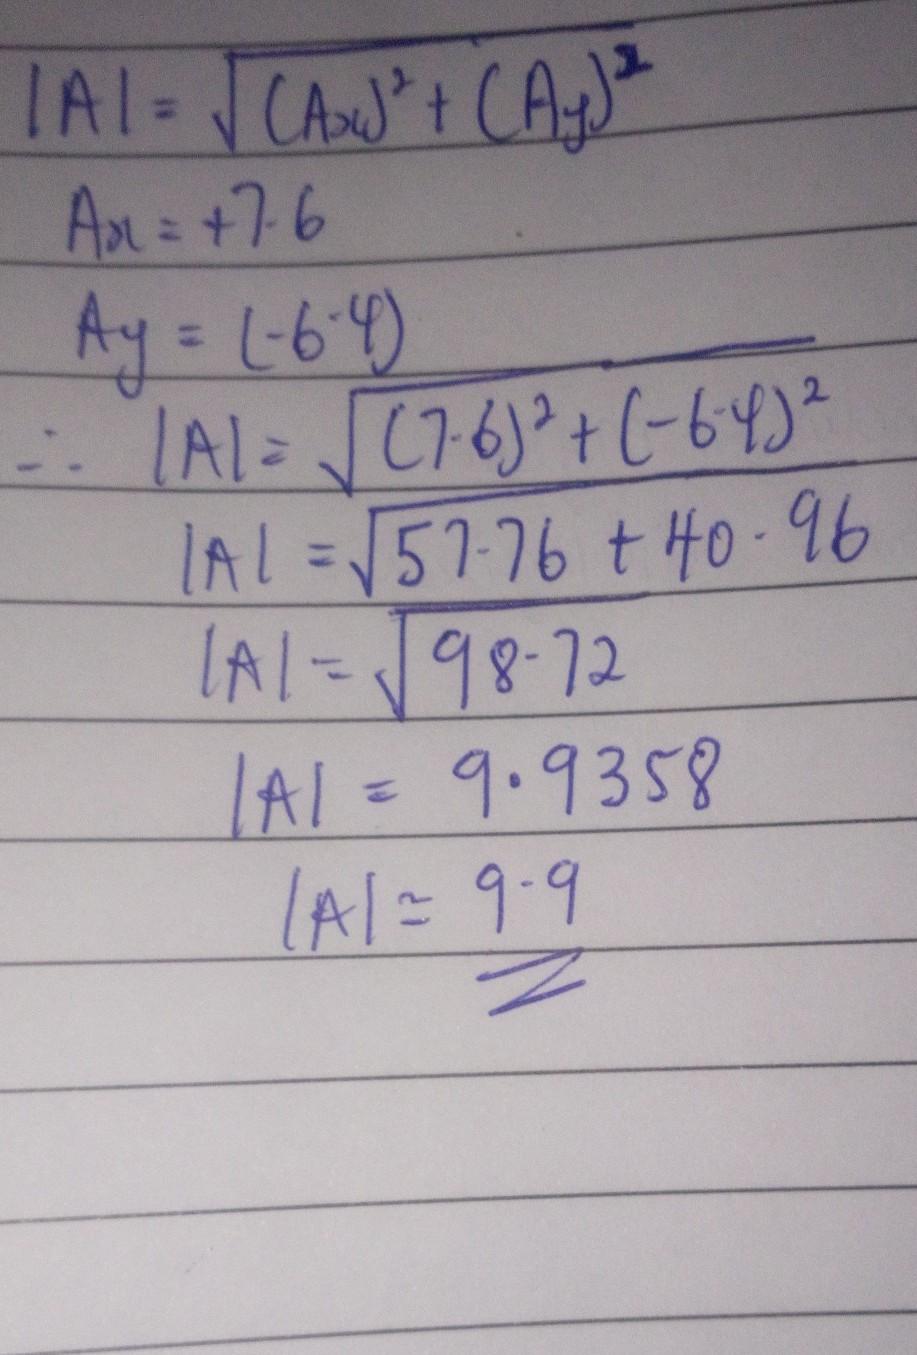 |A| = √(Ax)² + (Ay)²
Ax = +7.6
Ay = (-6.4)
∴ |A| = √(7.6)² + (-6.4)²
|A| = √57.76 + 40.96
|A| = √98.72
|A| = 9.9358
|A| ≃ 9.9